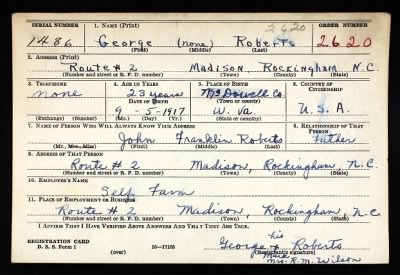 SERIAL NUMBER 1. NAME (Print) 2620 ORDER NUMBER
1486 George (none) Roberts 2620
(First) (Middle) (Last)
2. ADDRESS (Print)
Route # 2 Madison, Rockingham N.C.
(Number and street or R. F. D. number) (Town) (County) (State)
3. TELEPHONE 4. AGE IN YEARS 5. PLACE OF BIRTH 6. COUNTRY OF CITIZENSHIP
none 23 years McDowell Co.
DATE OF BIRTH (Town or county)
9 - 5 - 1917 W. Va. U. S. A.
(Exchange) (Number) (Mo.) (Day) (Yr.) (State or country)
7. NAME OF PERSON WHO WILL ALWAYS KNOW YOUR ADDRESS 8. RELATIONSHIP OF THAT PERSON
John Franklin Roberts Father
(Mr., Mrs., Miss) (First) (Middle) (Last)
9. ADDRESS OF THAT PERSON
Route # 2 Madison, Rockingham, N.C.
(Number and street or R. F. D. number) (Town) (County) (State)
10. EMPLOYER'S NAME
Self Farm
11. PLACE OF EMPLOYMENT OR BUSINESS
Route # 2 Madison, Rockingham, N.C
(Number and street or R. F. D. number) (Town) (County) (State)
I AFFIRM THAT I HAVE VERIFIED ABOVE ANSWERS AND THAT THEY ARE TRUE.
his
George x Roberts
REGISTRATION CARD
D. S. S. Form 1 (over) 16—17105 (Registrant's signature)
mark
Mrs. R. M. Wilson